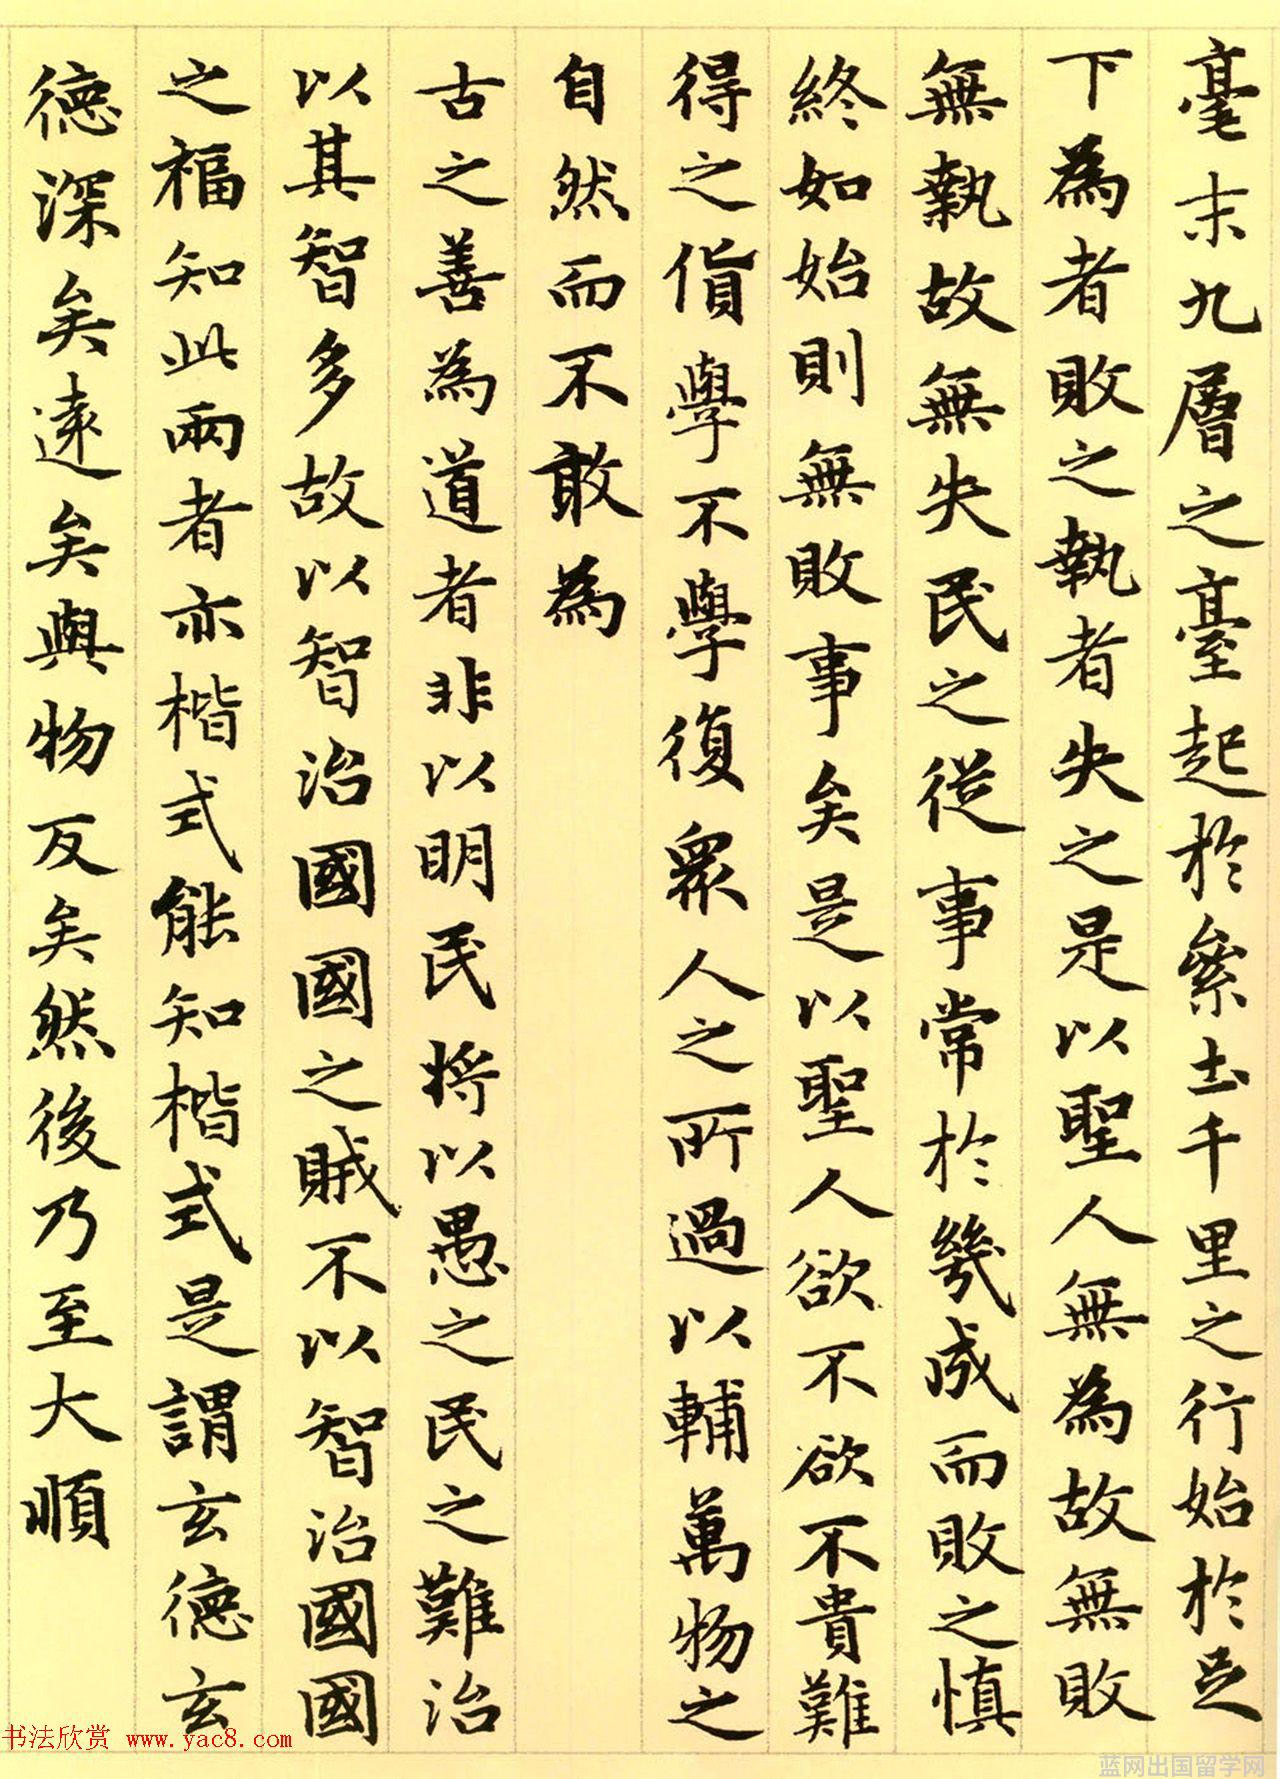 毫末九層之臺起於絫土千里之行始於足
下為者敗之執者失之是以聖人無為故無敗
無執故無失民之從事常於幾成而敗之慎
終如始則無敗事矣是以聖人欲不欲不貴難
得之貨學不學復眾人之所過以輔萬物之
自然而不敢為
古之善為道者非以明民將以愚之民之難治
以其智多故以智治國國之賊不以智治國國
之福知此兩者亦楷式能知楷式是謂玄德玄
德深矣遠矣與物反矣然後乃至大順
书法欣赏 www.yac8.com
蓝网出国留学网